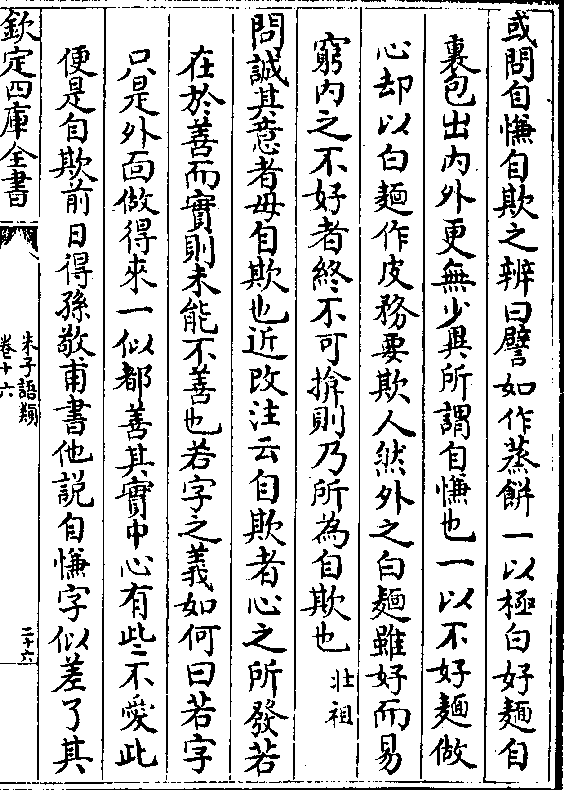 或問自慊自欺之辨曰譬如作蒸餅一以極白好麵自
裏包出内外更無少異所謂自慊也一以不好麵做
心却以白麵作皮務要欺人然外之白麵雖好而易
窮内之不好者終不可揜則乃所為自欺也壯祖
問誠其意者毋自欺也近改注云自欺者心之所發若
在於善而實則未能不善也若字之義如何曰若字
只是外面做得來一似都善其實中心有些不愛此
便是自欺前日得孫敬甫書他説自慊字似差了其
欽定四庫全書
朱子語類
卷十六
二十六